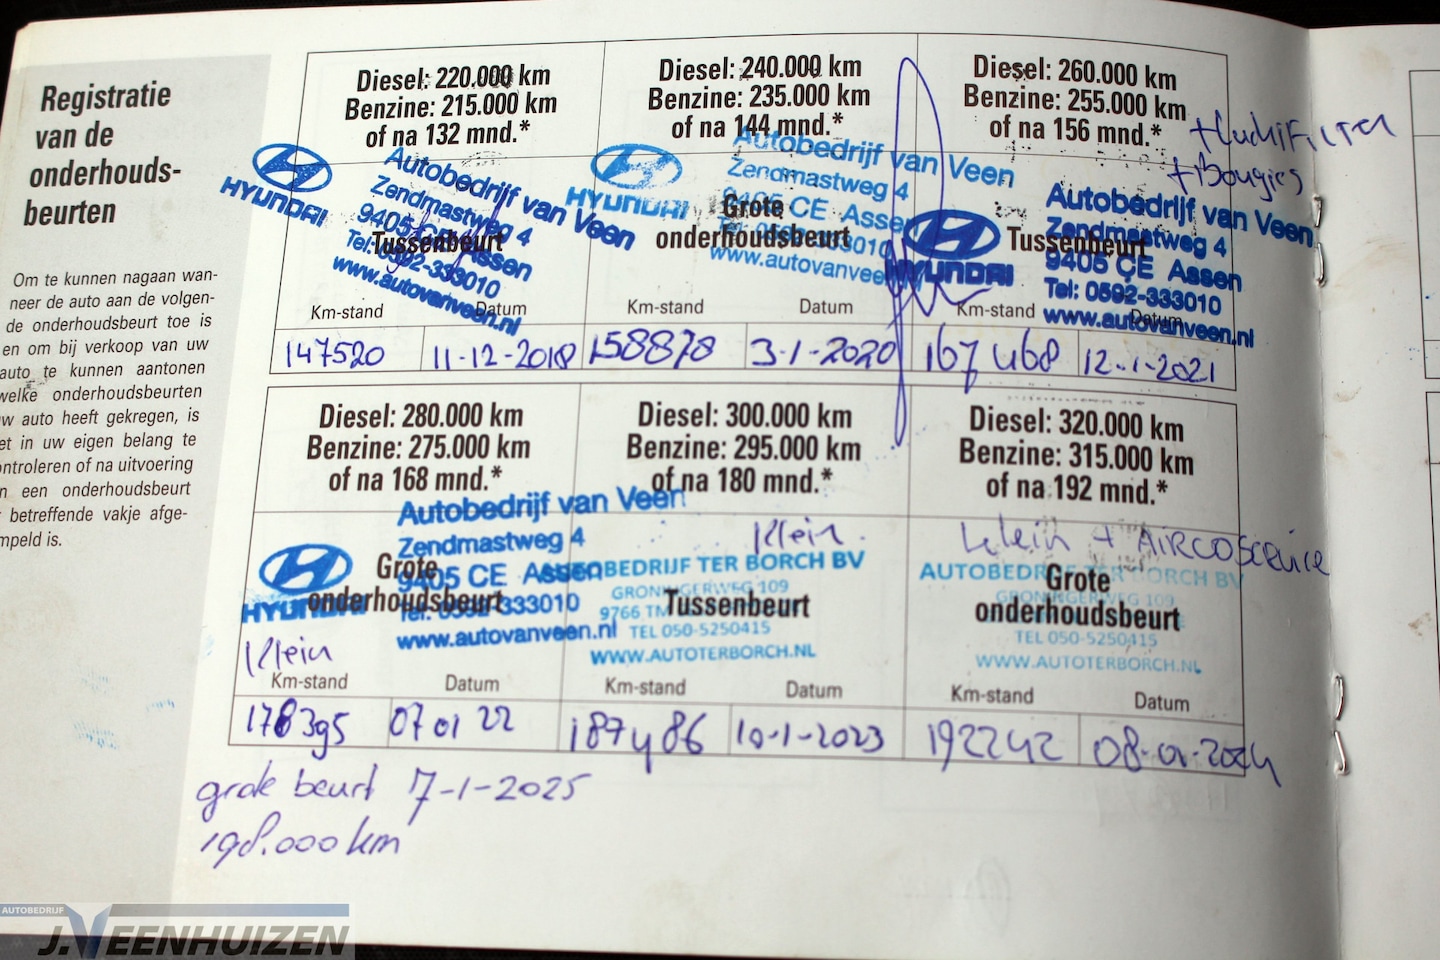 Registratie
van de
onderhouds-
beurten
Om te kunnen nagaan wan-
neer de auto aan de volgen-
de onderhoudsbeurt toe is
en om bij verkoop van uw
auto te kunnen aantonen
welke onderhoudsbeurten
uw auto heeft gekregen, is
et in uw eigen belang te
ontroleren of na uitvoering
n een onderhoudsbeurt
betreffende vakje afge-
mpeld is.
Diesel: 220.000 km
Benzine: 215.000 km
of na 132 mnd.*
HYUNDAI
Autobedrijf van Veen
Zendmastweg 4
9405 CE Assen
Tel: 0592-333010
www.autovanveen.nl
Tussenbeurt
Km-stand
Datum
147520
11-12-2018
Diesel: 240.000 km
Benzine: 235.000 km
of na 144 mnd.*
HYUNDAI
Autobedrijf van Veen
Zendmastweg 4
9405 CE Assen
Tel: 0592-333010
www.autovanveen
Grote
onderhoudsbeurt
Km-stand
Datum
158878
3-1-2020
Diesel: 260.000 km
Benzine: 255.000 km
of na 156 mnd.*
+LuchtFilter
+Bougies
HYUNDAI
Autobedrijf van Veen
Zendmastweg 4
9405 CE Assen
Tel: 0592-333010
www.autovanveen.nl
Tussenbeurt
Km-stand
Datum
167468
12-1-2021
Diesel: 280.000 km
Benzine: 275.000 km
of na 168 mnd.*
HYUNDAI
Autobedrijf van Veen
Zendmastweg 4
9405 CE Assen
Tel: 0592-333010
www.autovanveen.nl
Grote
onderhoudsbeurt
Klein
Km-stand
Datum
178395
07 01 22
Diesel: 300.000 km
Benzine: 295.000 km
of na 180 mnd.*
Klein.
AUTOBEDRIJF TER BORCH BV
GRONINGERWEG 109
9766 TM
TEL 050-5250415
WWW.AUTOTERBORCH.NL
Tussenbeurt
Km-stand
Datum
187486
10-1-2023
Diesel: 320.000 km
Benzine: 315.000 km
of na 192 mnd.*
Klein + AIRCOSERVICE
AUTOBEDRIJF TER BORCH BV
GRONINGERWEG 109
TEL 050-5250415
WWW.AUTOTERBORCH.NL
Grote
onderhoudsbeurt
Km-stand
Datum
192242
08-01-2024
grote beurt 7-1-2025
198.000 km
AUTOBEDRIJF
J.VEENHUIZEN